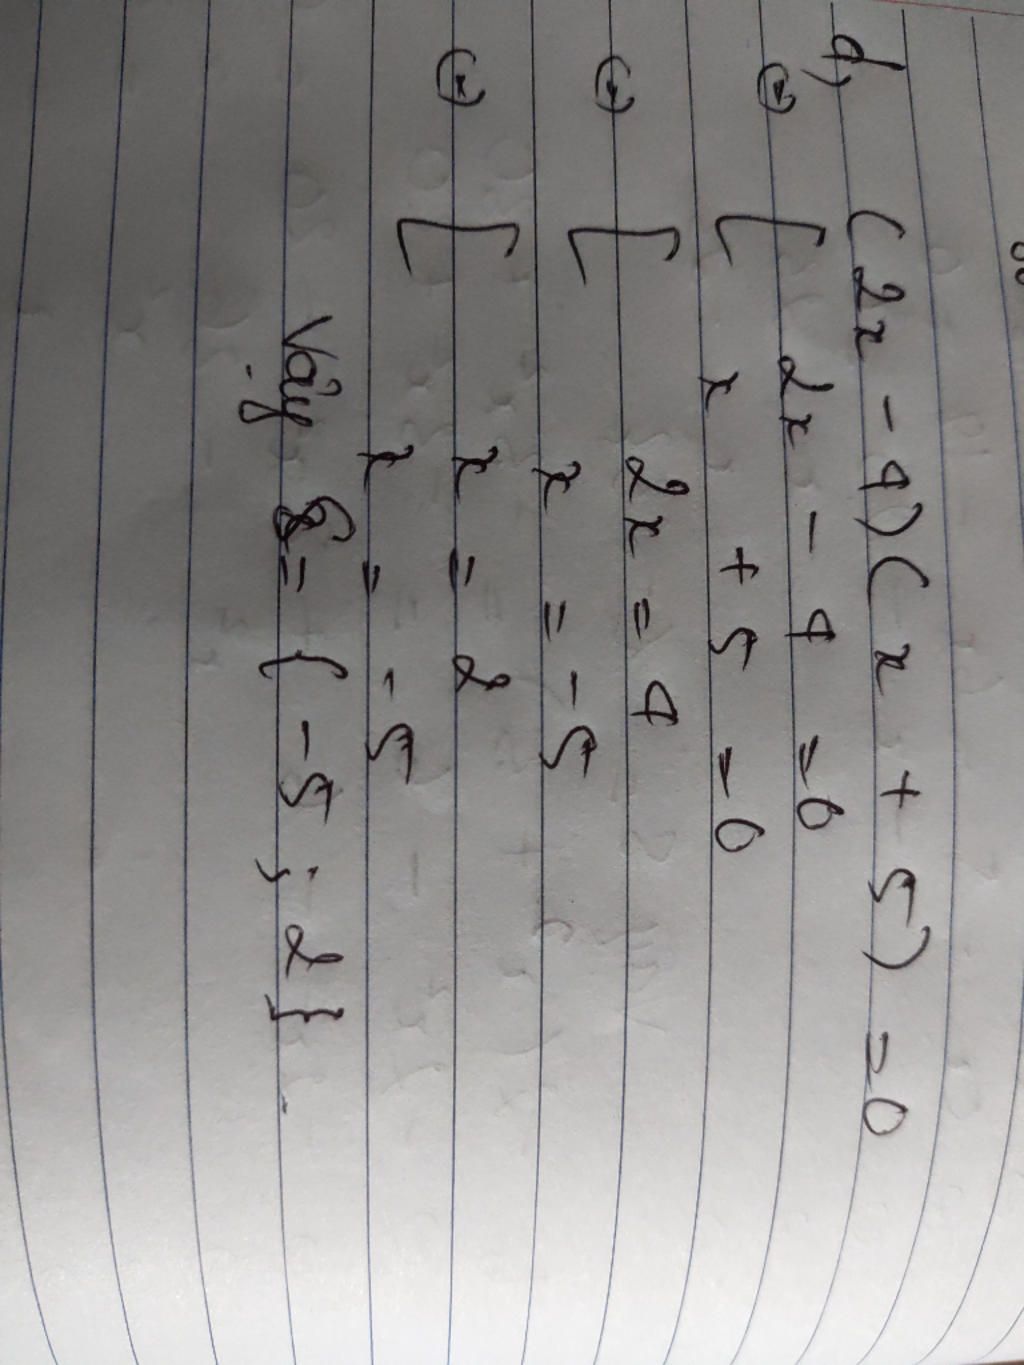 d, (2x - 4)(x + 5) = 0
(*) [ 2x - 4 = 0
x + 5 = 0
(*) [ 2x = 4
x = -5
(*) [ x = 2
x = -5
Vậy S = { -5 ; 2 } .